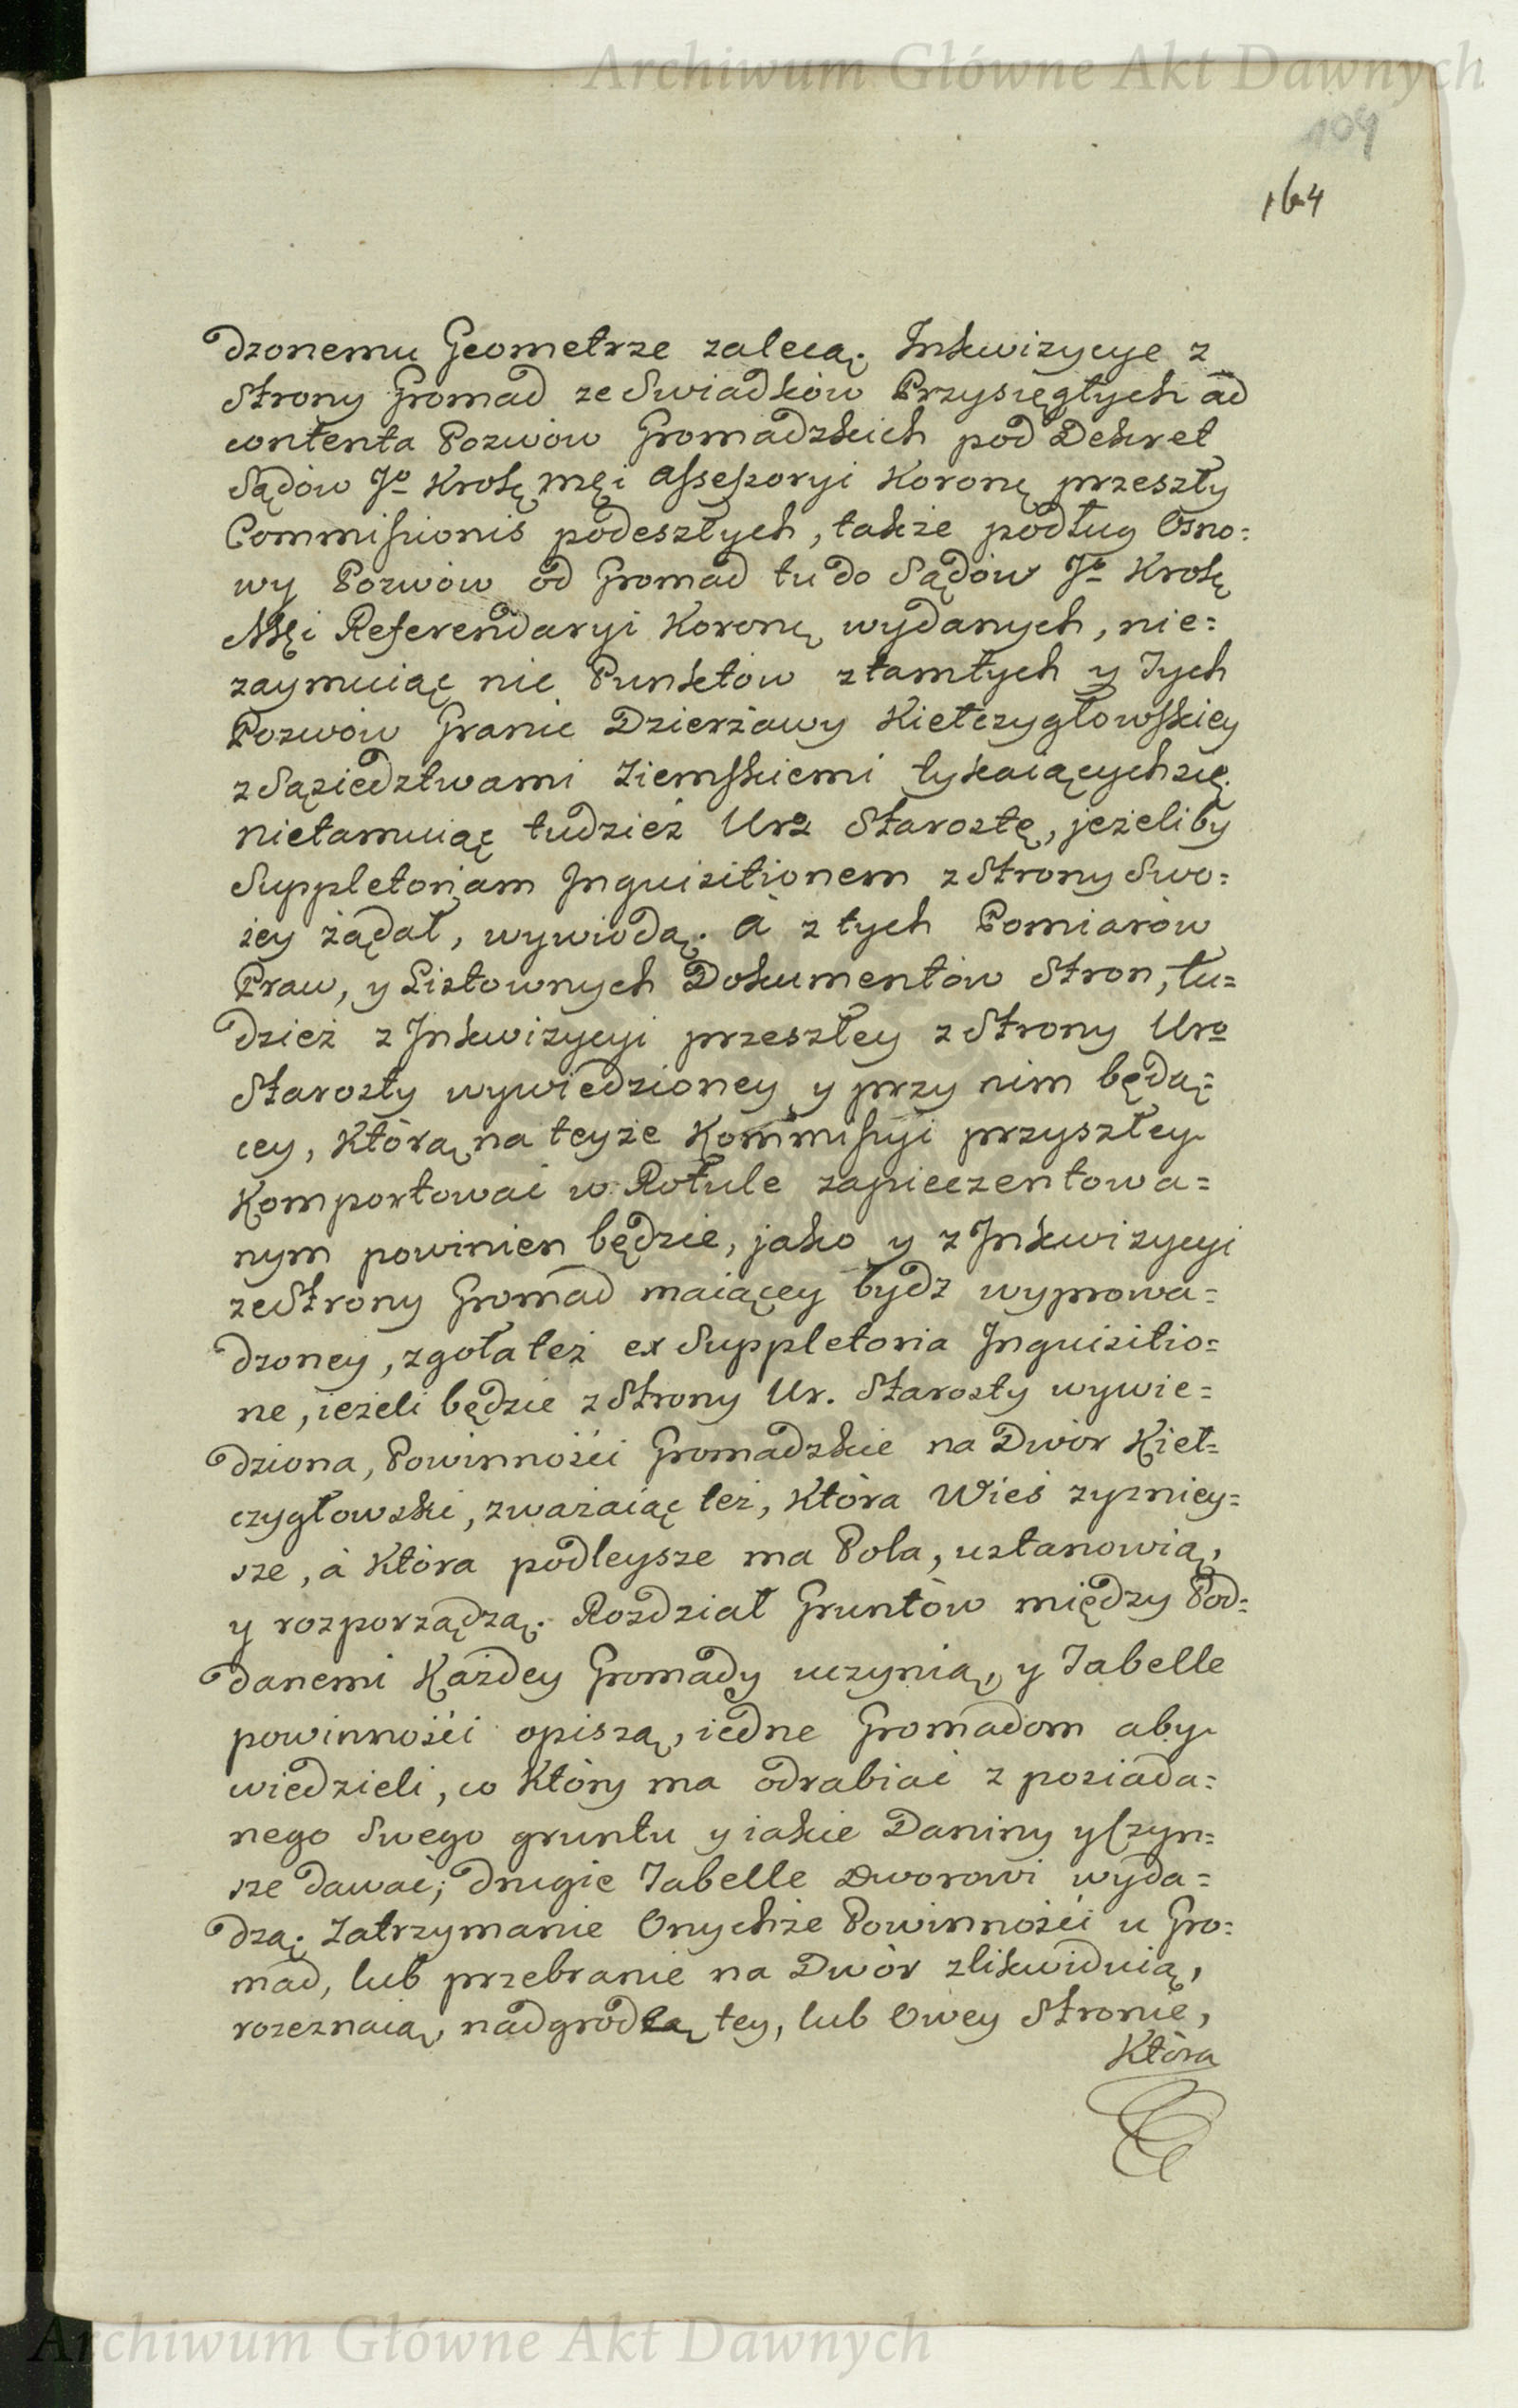 Archiwum Główne Akt Dawnych
109
164
dzonemu Geometrze zalecą. Inkwizycye z
Strony Gromad ze Swiadków Przysięgłych ad
contenta Pozwów Gromadzkich pod Dekret
Sądów Jo Krolę męi Assessoryi Koronę przeszły
Commissionis podeszłych, także podług Osno=
wy Pozwów od Gromad tu do Sądów Jo Krolę
Męi Referendaryi Koronę wydanych, nie=
zaymuiąc nic Punktów z tamtych y Tych
Pozwów Granic Dzierżawy Kiełczygłowskiey
z Sąsiedztwami Ziemskiemi tykaiących się.
nietamuiąc tudzież Uro Starostę, jeżeliby
Suppletoriam Inquisitionem z Strony Swo=
iey żądał, wywiodą. à z tych Pomiarów
Praw, y Listownych Dokumentów Stron, tu=
dzież z Inkwizycyi przeszłey z Strony Uro
Starosty wywiedzioney y przy nim będą=
cey, którą na teyże Kommissyi przyszłey
Komportować w Rotule zapieczentowa=
nym powinien będzie, jako y z Inkwizycyi
ze Strony Gromad maiącey bydz wyprowa=
dzoney, zgoła też ex Suppletoria Inquisitio=
ne, ieżeli będzie z Strony Ur. Starosty wywie=
dziona, Powinnośći Gromadzkie na Dwór Kieł=
czygłowski, zważaiąc też, która Wieś zyzniey=
sze, à która podleysze ma Pola, ustanowią,
y rozporządzą. Rozdział Gruntów między Pod=
danemi każdey Gromady uczynią, y Tabelle
powinnośći opiszą, iedne Gromadom aby
wiedzieli, co który ma odrabiać z posiada=
nego Swego gruntu y iakie Daniny y Czyn=
sze dawać; drugie Tabelle Dworowi wyda=
dzą. Zatrzymanie Onychże Powinnośći u Gro=
mad, lub przebranie na Dwór zlikwiduią,
rozeznaią, nadgrodzą tey, lub Owey Stronie,
Która
Archiwum Główne Akt Dawnych